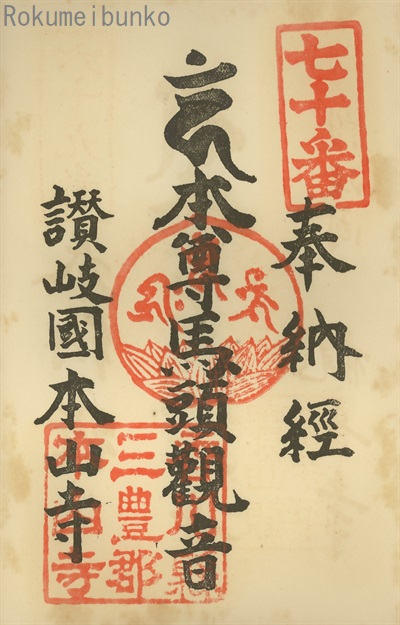 Rokumeibunko
七十番
奉納經
本尊馬頭觀音
讃岐國本山寺
三豊郡
本山寺